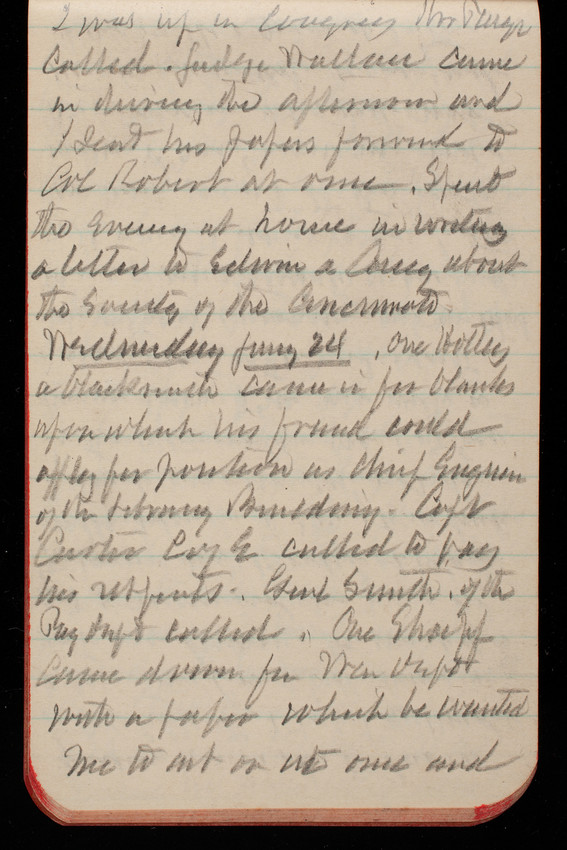 I was up in Congress Mr
called. Judge Wallace came
in during the afternoon and
I sent his papers forward to
Col Robert at once. Spent
the evening at home in writing
a letter to Edwin a about
the Society of the
Wednesday Jany 24, One
a blacksmith came in for blanks
upon which his friend could
apply for position as chief Engineer
of the Library Building. Capt
Carter Corp E called to pay
his respects. Genl Smith, of the
Pay Dept called. One
came down fr War Dept
with a paper which he wanted
me to act on at once and